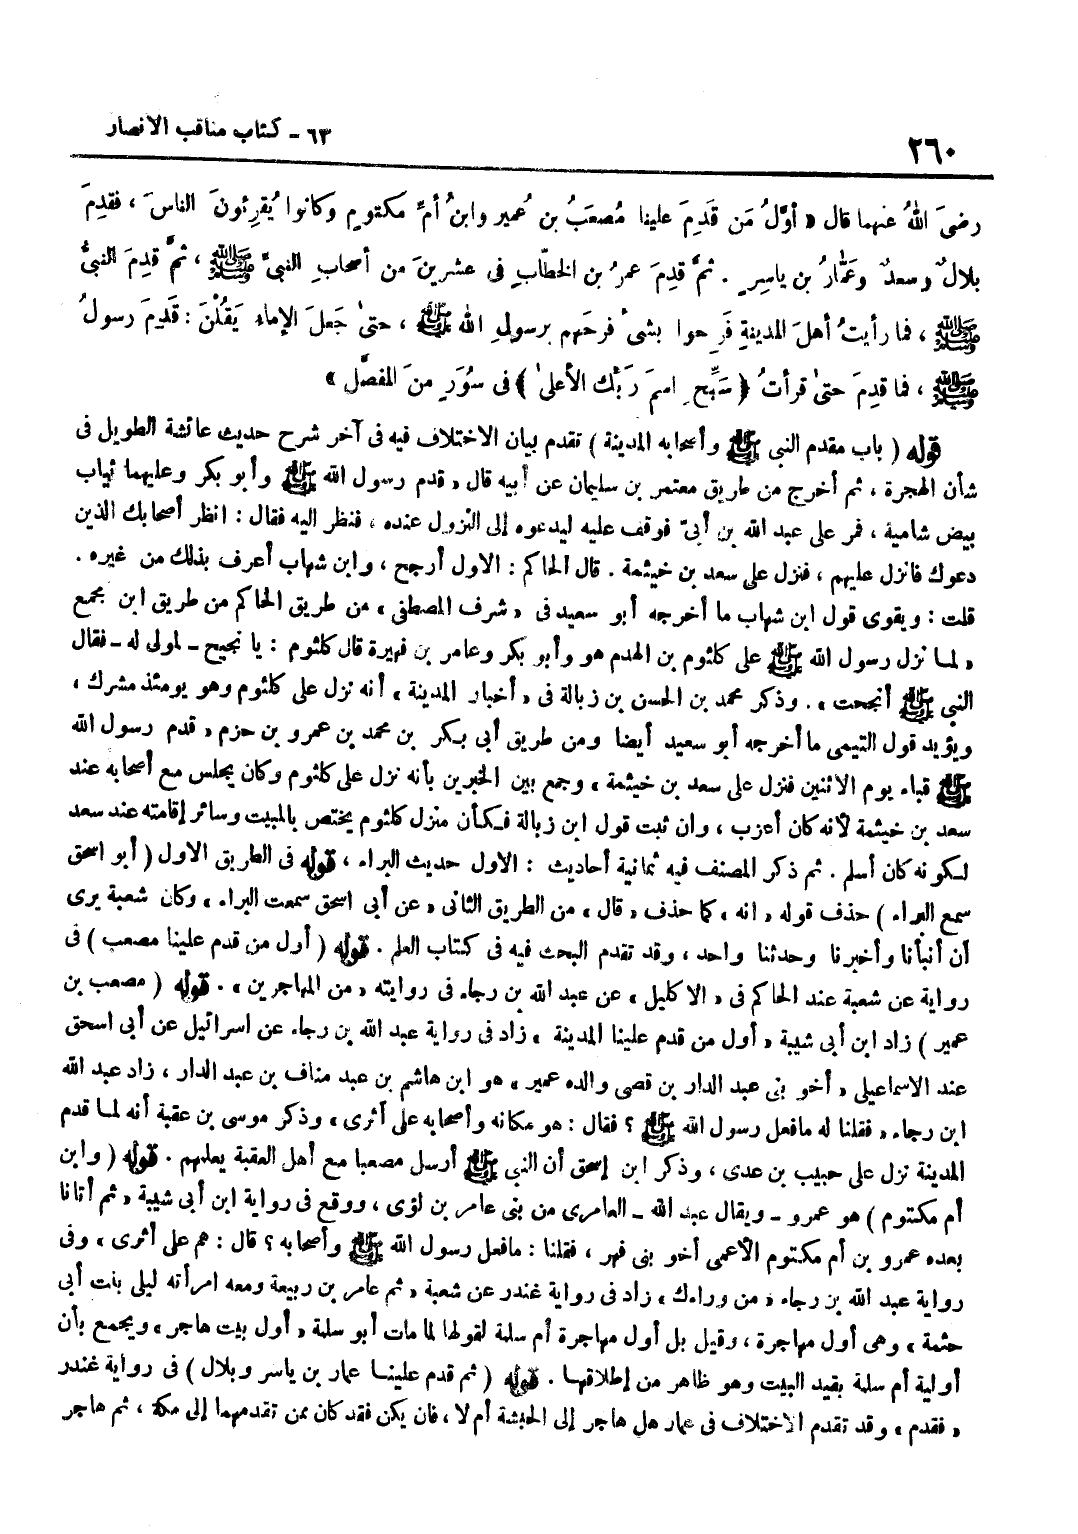 ٢٦٠
٦٣ - كتاب مناقب الانصار
رضىَ اللهُ عنهما قال « أوَّلُ مَن قَدِمَ علينا مُصعَبُ بن عُمير وابنُ أمِّ مكتومٍ وكانوا يُقرِئونَ الناسَ ، فقدِمَ
بلالٌ وسعدٌ وعَمّارُ بن ياسرٍ . ثمَّ قدِمَ عمرُ بن الخطّابِ فى عشرينَ من أصحابِ النبىِّ ﷺ ، ثمَّ قدِمَ النبىُّ
ﷺ ، فما رأيتُ أهلَ المدينةِ فَرِحوا بشىءٍ فرحَهم برسولِ الله ﷺ ، حتىٰ جَعلَ الإماءُ يَقُلْنَ : قَدِمَ رسولُ
ﷺ ، فما قدِمَ حتىٰ قرأتُ ﴿ سَبِّحِ اسمَ رَبِّكَ الأعلىٰ ﴾ فى سُوَرٍ منَ المفصَّل »
قوله ( باب مقدم النبي ﷺ وأصحابه المدينة ) تقدم بيان الاختلاف فيه فى آخر شرح حديث عائشة الطويل فى
شأن الهجرة ، ثم أخرج من طريق معتمر بن سليمان عن أبيه قال « قدم رسول الله ﷺ وأبو بكر وعليهما ثياب
بيض شامية ، فمر على عبد الله بن أبىّ فوقف عليه ليدعوه إلى النزول عنده ، فنظر اليه فقال : انظر أصحابك الذين
دعوك فانزل عليهم ، فنزل على سعد بن خيثمة . قال الحاكم : الاول أرجح ، وابن شهاب أعرف بذلك من غيره .
قلت : ويقوى قول ابن شهاب ما أخرجه أبو سعيد فى « شرف المصطفى » من طريق الحاكم من طريق ابن مجمع
« لمـا نزل رسول الله ﷺ على كلثوم بن الهدم هو وأبو بكر وعامر بن فهيرة قال كلثوم : يا نجيح - لمولى له - فقال
النبي ﷺ أنجحت » . وذكر محمد بن الحسن بن زبالة فى « أخبار المدينة » أنه نزل على كلثوم وهو يومئذ مشرك ،
ويؤيد قول التيمى ما أخرجه أبو سعيد أيضا ومن طريق أبى بـكر بن محمد بن عمرو بن حزم « قدم رسول الله
ﷺ قباء يوم الاثنين فنزل على سعد بن خيثمة » وجمع بين الخبرين بأنه نزل على كلثوم وكان يجلس مع أصحابه عند
سعد بن خيثمة لأنه كان أعزب ، وان ثبت قول ابن زبالة فـكـأن منزل كلثوم يختص بالمبيت وسائر إقامته عند سعد
لـكونه كان أسلم . ثم ذكر المصنف فيه ثمانية أحاديث : الاول حديث البراء ، قوله فى الطريق الاول ( أبو اسحق
سمع البراء ) حذف قوله « انه » كما حذف « قال » من الطريق الثانى « عن أبى اسحق سمعت البراء » وكان شعبة يرى
أن أنبأنا وأخبرنا وحدثنا واحد ، وقد تقدم البحث فيه فى كتاب العلم . قوله ( أول من قدم علينا مصعب ) فى
رواية عن شعبة عند الحاكم فى « الاكليل » عن عبد الله بن رجاء فى روايته « من المهاجرين » . قوله ( مصعب بن
عمير ) زاد ابن أبى شيبة « أول من قدم علينا المدينة » زاد فى رواية عبد الله بن رجاء عن اسرائيل عن أبى اسحق
عند الاسماعيلى « أخو بنى عبد الدار بن قصى والده عمير » هو ابن هاشم بن عبد مناف بن عبد الدار ، زاد عبد الله
ابن رجاء « فقلنا له مافعل رسول الله ﷺ ؟ فقال : هو مكانه وأصحابه على أثرى » وذكر موسى بن عقبة أنه لمـا قدم
المدينة نزل على حبيب بن عدى ، وذكر ابن إسحق أن النبي ﷺ أرسل مصعبا مع أهل العقبة يعلمهم . قوله ( وابن
أم مكتوم ) هو عمرو - ويقال عبد الله - العامرى من بنى عامر بن لؤى ، ووقع فى رواية ابن أبى شيبة « ثم أتانا
بعده عمرو بن أم مكتوم الأعمى أخو بنى فهر ، فقلنا : مافعل رسول الله ﷺ وأصحابه ؟ قال : هم على أثرى » وفى
رواية عبد الله بن رجاء « من وراءك » زاد فى رواية غندر عن شعبة « ثم عامر بن ربيعة ومعه امرأته ليلى بنت أبى
حثمة » وهى أول مهاجرة ، وقيل بل أول مهاجرة أم سلمة لقولها لما مات أبو سلمة « أول بيت هاجر » ويجمع بأن
أولية أم سلمة بقيد البيت وهو ظاهر من إطلاقهـا . قوله ( ثم قدم علينـا عمار بن ياسر وبلال ) فى رواية غندر
« فقدم » وقد تقدم الاختلاف فى عمار هل هاجر إلى الحبشة أم لا ، فان يكن فقد كان ممن تقدمهما إلى مكة ، ثم هاجر